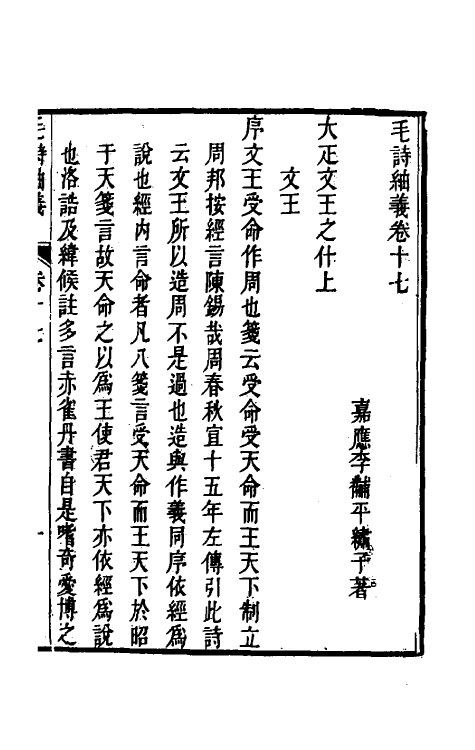 毛詩紬義卷十七
嘉應李黼平繡子著
大疋文王之什上
文王
序文王受命作周也箋云受命受天命而王天下制立
周邦按經言陳錫哉周春秋宣十五年左傳引此詩
云文王所以造周不是過也造與作義同序依經為
說也經內言命者凡八箋言受天命而王天下於昭
于天箋言故天命之以為王使君天下亦依經為說
也洛誥及緯候註多言赤雀丹書自是嗜奇愛博之
毛詩紬義
卷十七
一